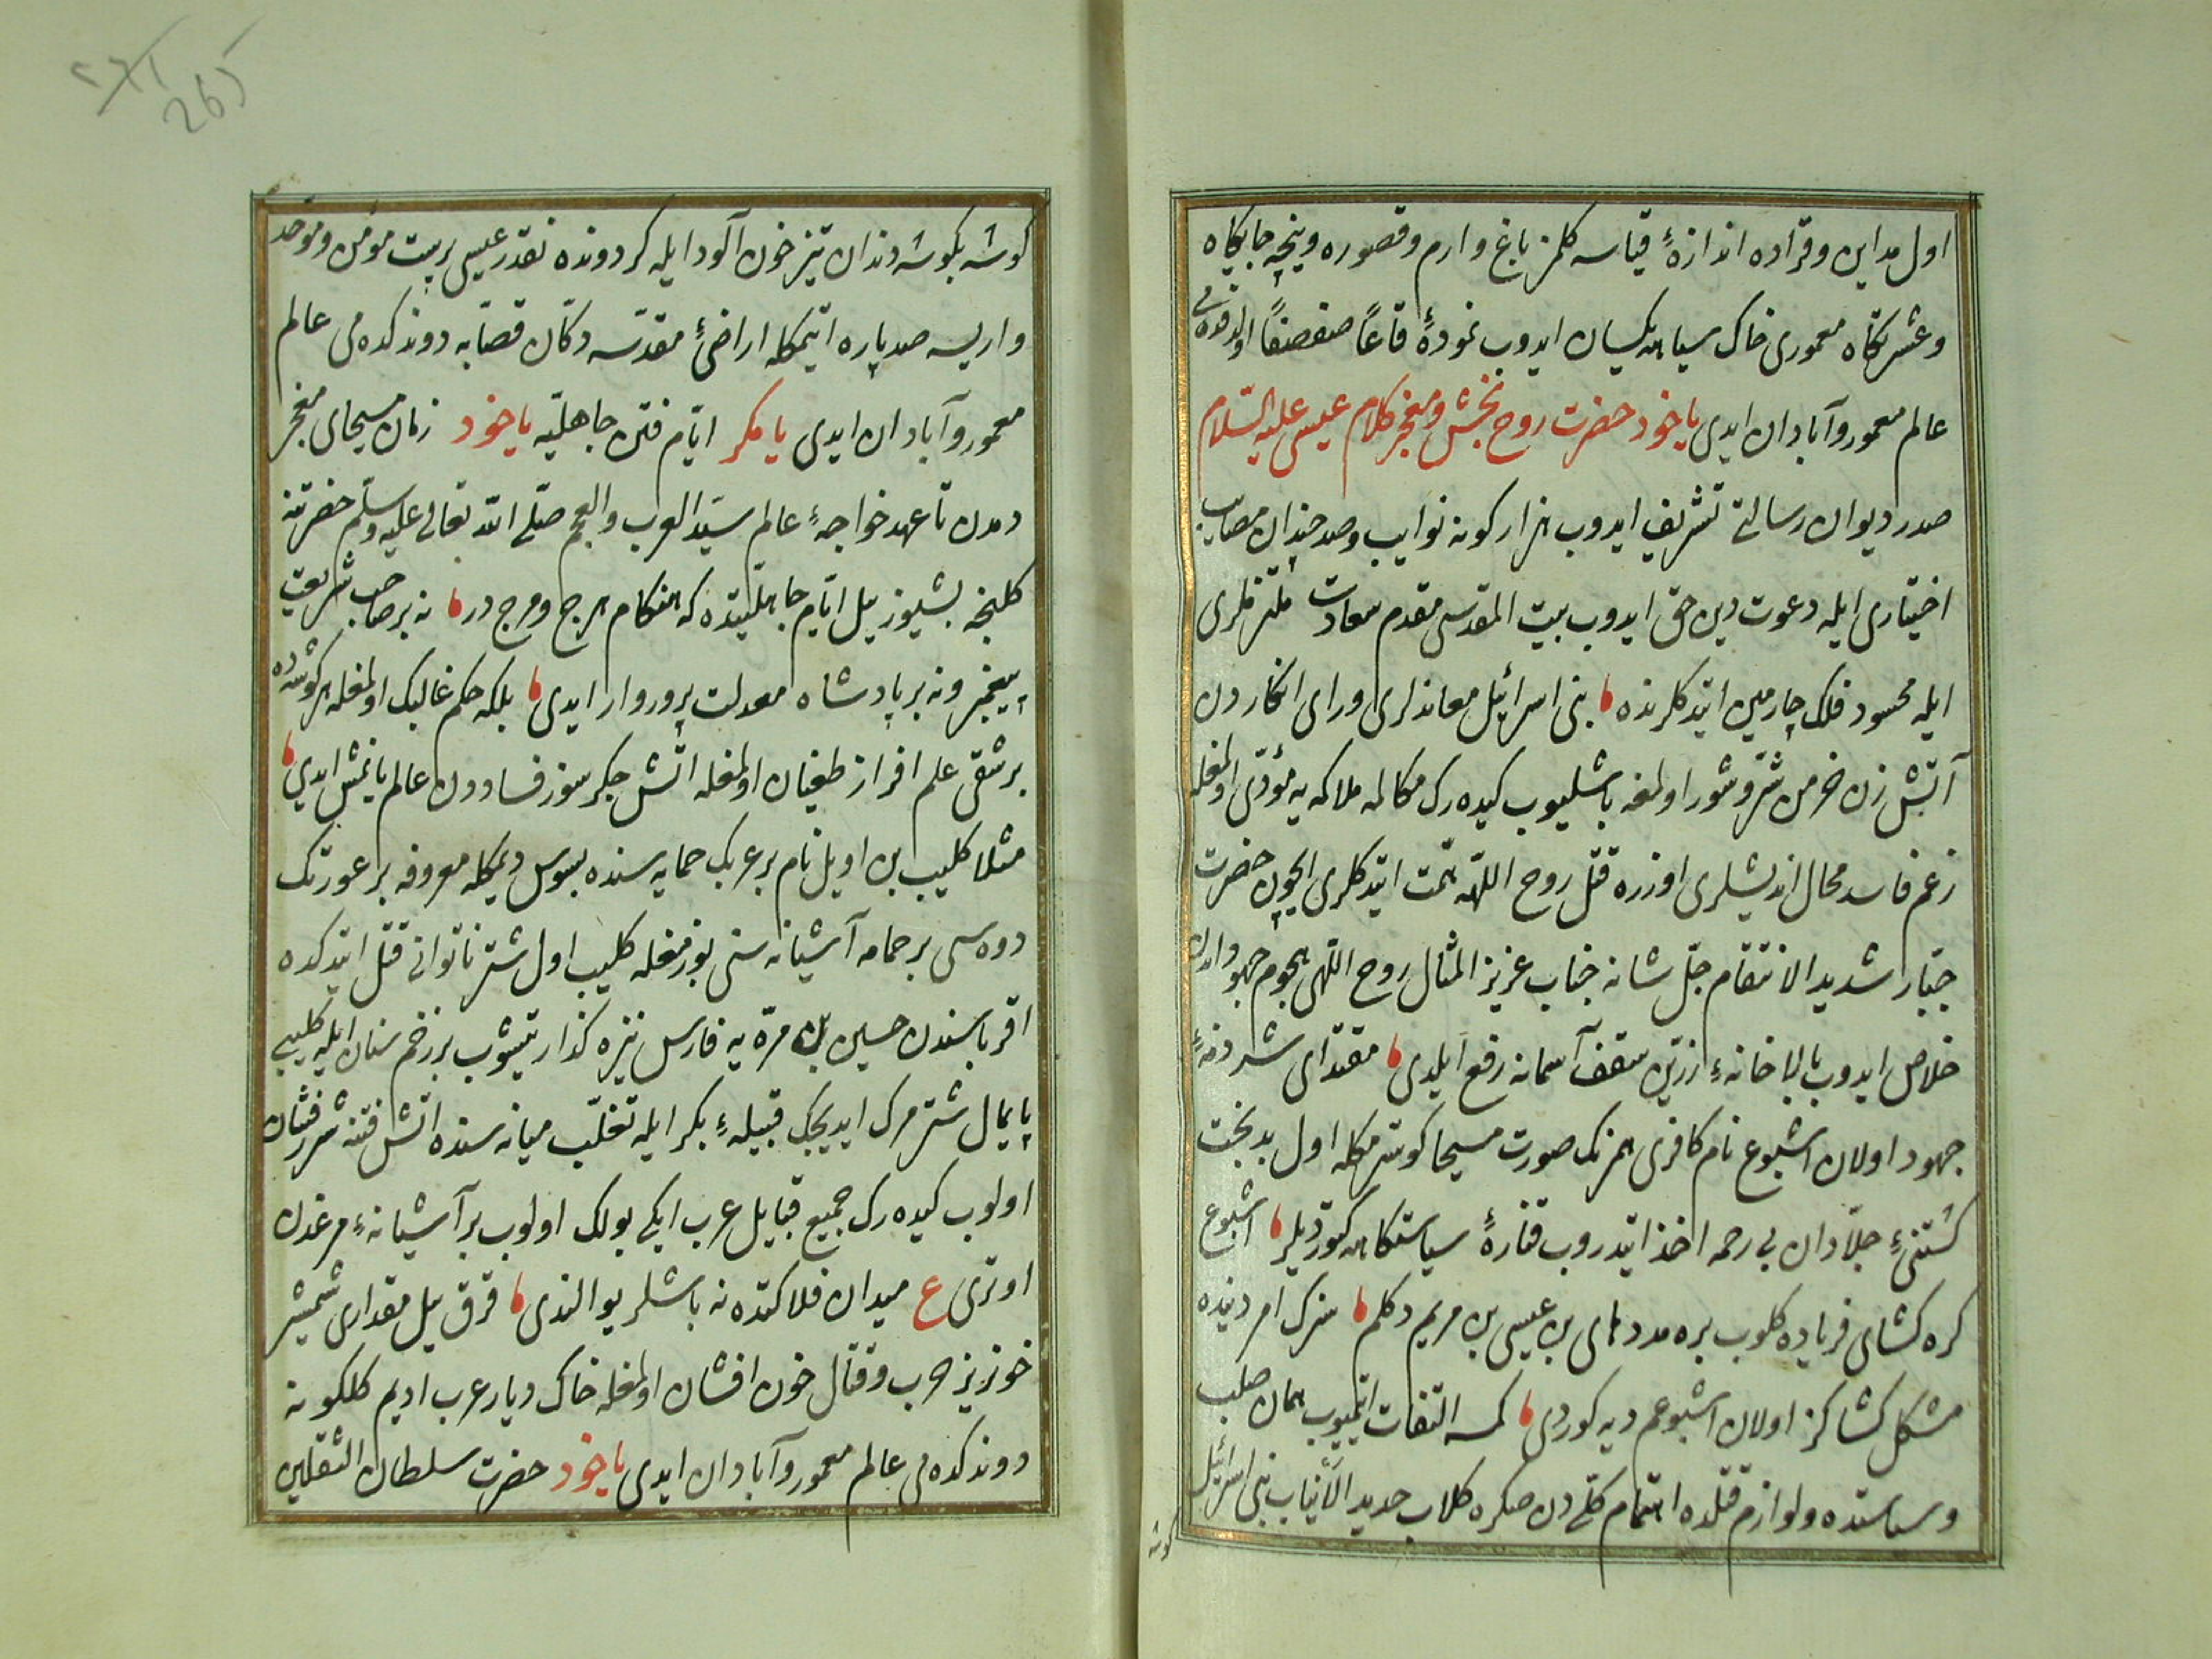 اول مداین و قراده اندازهٔ قیاسه کلمز باغ و ارم و قصوره و نیجه جایکاه
و عشرتکاه معموری خاک سیاهه یکسان ایدوب نمودهٔ قاعًا صفصفًا اولدقده می
عالم معمور و آبادان ایدی یاخود حضرت روح بخش و معجز کلام عیسی علیه السّلام
صدر دیوان رسالتی تشریف ایدوب هزار کونه نوایب و صد چندان مصایب
اختیاری ایله دعوت دین حق ایدوب بیت المقدسی مقدم سعادت ملتزملری
ایله محسود فلک چارمین ایتدکلرنده بنی اسرائیل معاندلری ورای انکاردن
آتش زن خرمن شرّ و شور اولمغه باشلیوب کیده رک مکالمه ملاکمه یه مؤدّی اولمغله
زعم فاسد محال اندیشلری اوزره قتل روح اللّهه همّت ایتدکلری ایچون حضرت
جبّار شدید الانتقام جلّ شانه جناب عزیز المثال روح اللّهی هجوم جهوداندن
خلاص ایدوب بالاخانهٔ زرّین سقف آسمانه رفع ایلدی مقتدای شرذمهٔ
جهود اولان اشیوع نام کافری همرنک صورت مسیحا کوسترمکله اول بدبخت
کشتنیءِ جلّادان بی رحمه اخذ ایتدروب قنارهٔ سیاستکاهه کتوردیلر اشیوع
کره کشای فریاده کلوب بره مدد های بن عیسی بن مریم دکلم سزک امر دینده
مشکل کشاکز اولان اشیوعم دیه کوردی کمسه التفات ایتمیوب همان صلب
و سیاستده و لوازم قتلده اهتمام کلّی دن صکره کلاب حدید الأنیاب بنی اسرائیل
کوشه
کوشه بکوشه دندان تیز خون آلود ایله کردونده نقدر عیسی پرست مؤمن و موحّد
واریسه صد پاره ایتمکله اراضیٔ مقدّسه دکّان قصّابه دوندکده می عالم
معمور و آبادان ایدی یا مکر ایّام فتن جاهلیّه یاخود زمان مسیحای معجز
دمدن تا عهد خواجهٔ عالم سیّد العرب و العجم صلّی اللّه تعالی علیه و سلّم حضرتنه
کلنجه بشیوز ییل ایّام جاهلیّتده که هنکام هرج و مرج در نه بر صاحب شریعت
پیغمبر و نه بر پادشاه معدلت پرور وار ایدی بلکه حکم غالبک اولمغله هر کوشه ده
بر شقی علم افراز طغیان اولمغله آتش جکر سوز فساددن عالم یانمش ایدی
مثلا کلیب بن اویل نام بر عربک حمایه سنده بسوس دیمکله معروفه بر عورتک
دوه سی بر حمامه آشیانه سنی بوزمغله کلیب اول شتر ناتوانی قتل ایتدکده
اقرباسندن حسین بن مرّه یه فارس نیزه کذار یتیشوب بر زخم سنان ایله کلیبی
پایمال شتر مرک ایدیجک قبیلهٔ بکر ایله تغلّب میانه سنده آتش فتنه شررفشان
اولوب کیده رک جمیع قبایل عرب ایکی بولک اولوب بر آشیانهٔ مرغدن
اوتری ع میدان فلاکتده نه باشلر یوالندی قرق ییل مقداری شمشیر
خونریز حرب و قتال خون افشان اولمغله خاک دیار عرب ادیم کلکونه
دوندکده می عالم معمور و آبادان ایدی یاخود حضرت سلطان الثقلین
265